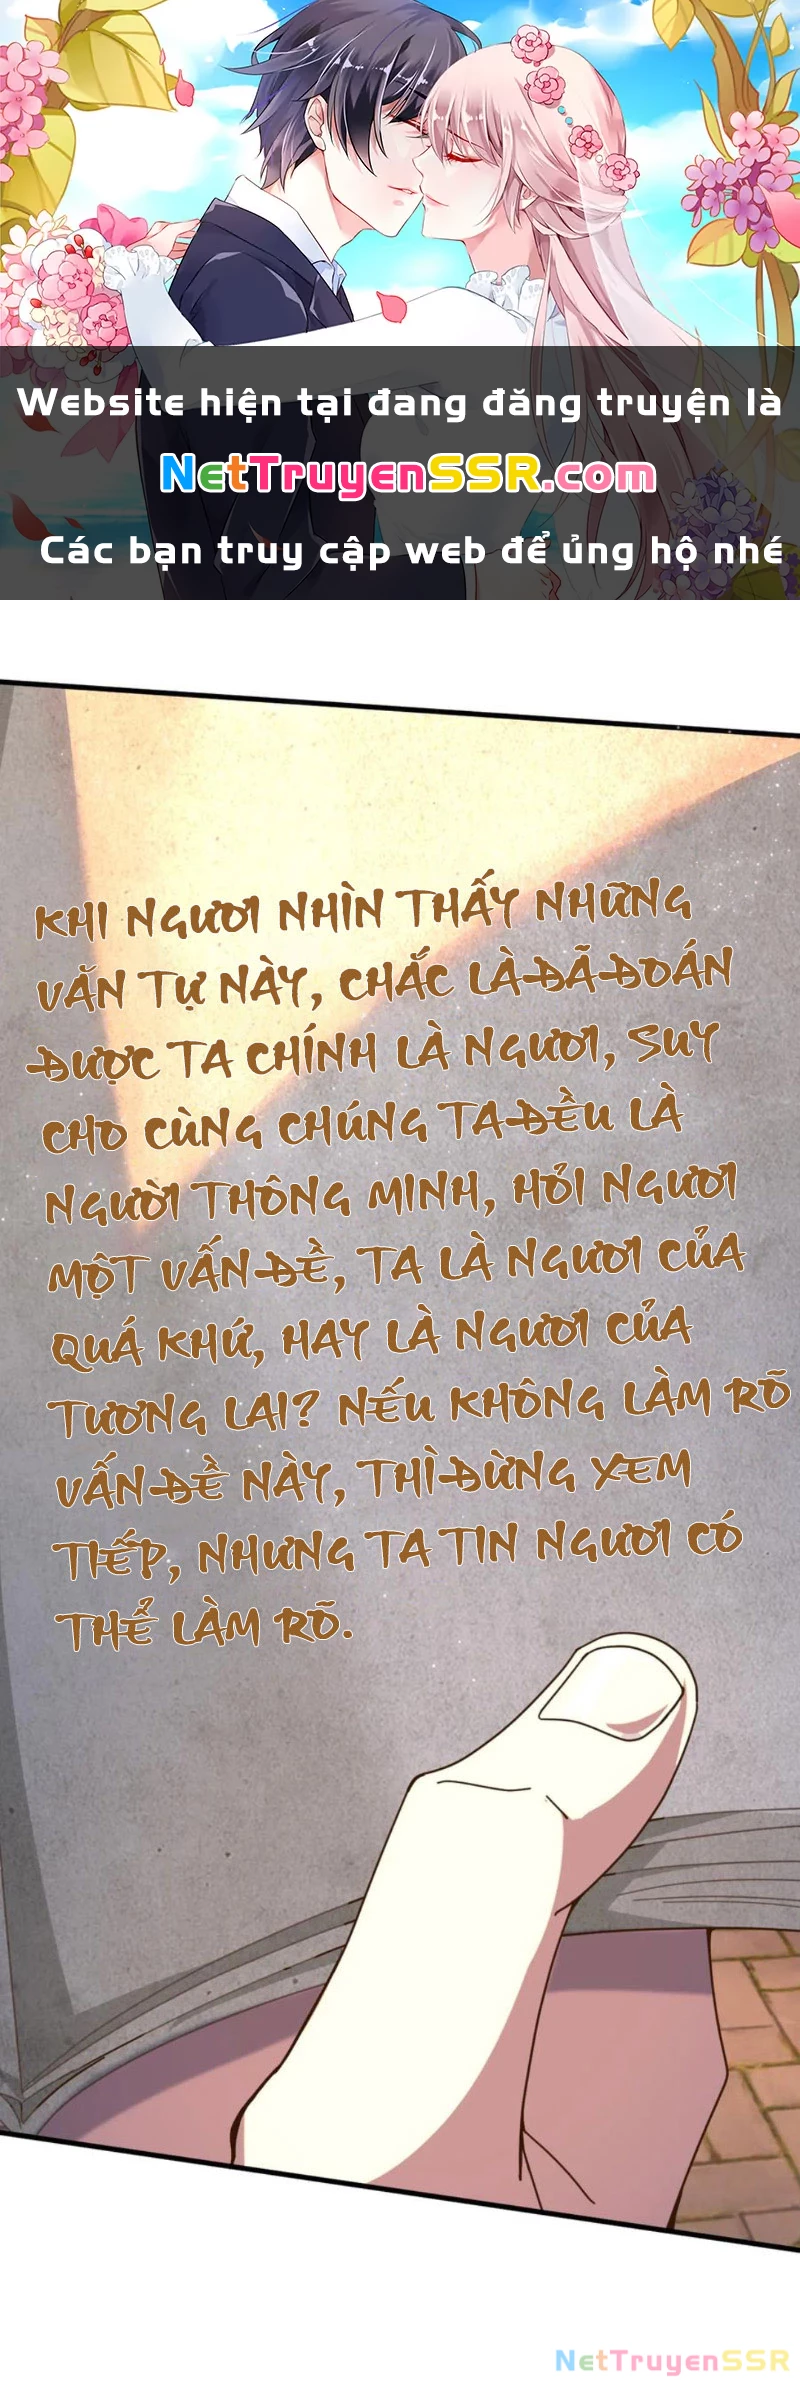 Website hiện tại đang đăng truyện là
NetTruyenSSR.com
Các bạn truy cập web để ủng hộ nhé
KHI NGƯƠI NHÌN THẤY NHỮNG
VĂN TỰ NÀY, CHẮC LÀ ĐÃ ĐOÁN
ĐƯỢC TA CHÍNH LÀ NGƯƠI, SUY
CHO CÙNG CHÚNG TA ĐỀU LÀ
NGƯỜI THÔNG MINH, HỎI NGƯƠI
MỘT VẤN ĐỀ, TA LÀ NGƯƠI CỦA
QUÁ KHỨ, HAY LÀ NGƯƠI CỦA
TƯƠNG LAI? NẾU KHÔNG LÀM RÕ
VẤN ĐỀ NÀY, THÌ ĐỪNG XEM
TIẾP, NHƯNG TA TIN NGƯƠI CÓ
THỂ LÀM RÕ.
NetTruyenSSR